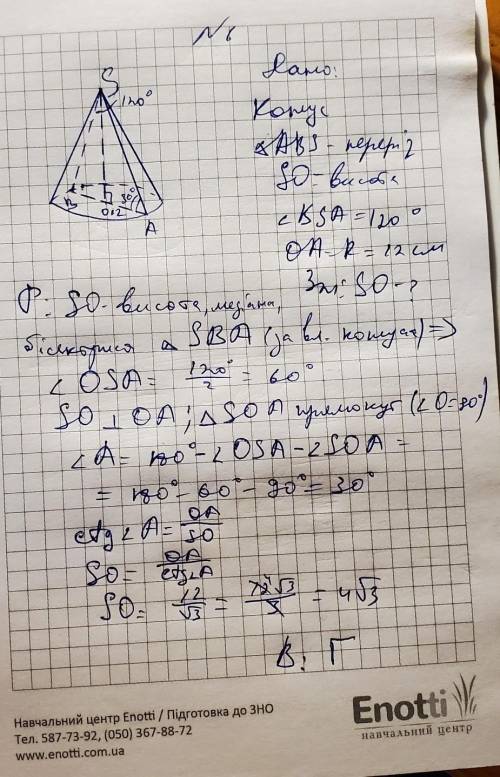 N 6
Дано:
S
120°
Конус
△ABS - переріз
SO - висота
B
30°
O 12
A
∠KSA = 120°
OA - R = 12 см
Зн: SO - ?
Р: SO - висота, медіана,
бісектриса △ SBA (за вл. конуса) =>
∠ OSA = 120°/2 = 60°
SO ⊥ OA; △SOA прямокут (∠O = 90°)
∠A = 180° - ∠OSA - ∠SOA =
= 180° - 60° - 90° = 30°
ctg∠A = OA/SO
SO = OA/ctg∠A
SO = 12/√3 = 12√3/3 = 4√3
В: Г
Навчальний центр Enotti / Підготовка до ЗНО
Тел. 587-73-92, (050) 367-88-72
www.enotti.com.ua
Enotti
навчальний центр